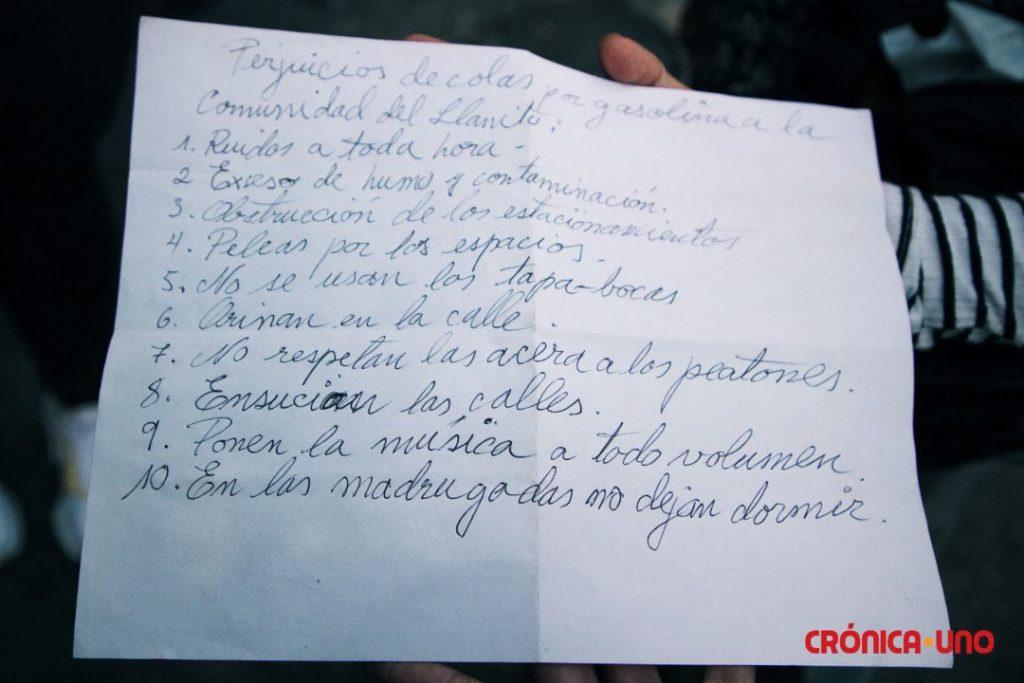 Perjuicios de colas por gasolina a la
Comunidad del Llanito:
1. Ruidos a toda hora -
2 Exceso de humo y contaminación.
3. Obstrucción de los estacionamientos
4. Peleas por los espacios.
5. No se usan los tapa-bocas
6. Orinan en la calle.
7. No respetan las acera a los peatones.
8. Ensucian las calles.
9. Ponen la música a todo volumen.
10. En las madrugadas no dejan dormir.
CRÓNICA·UNO